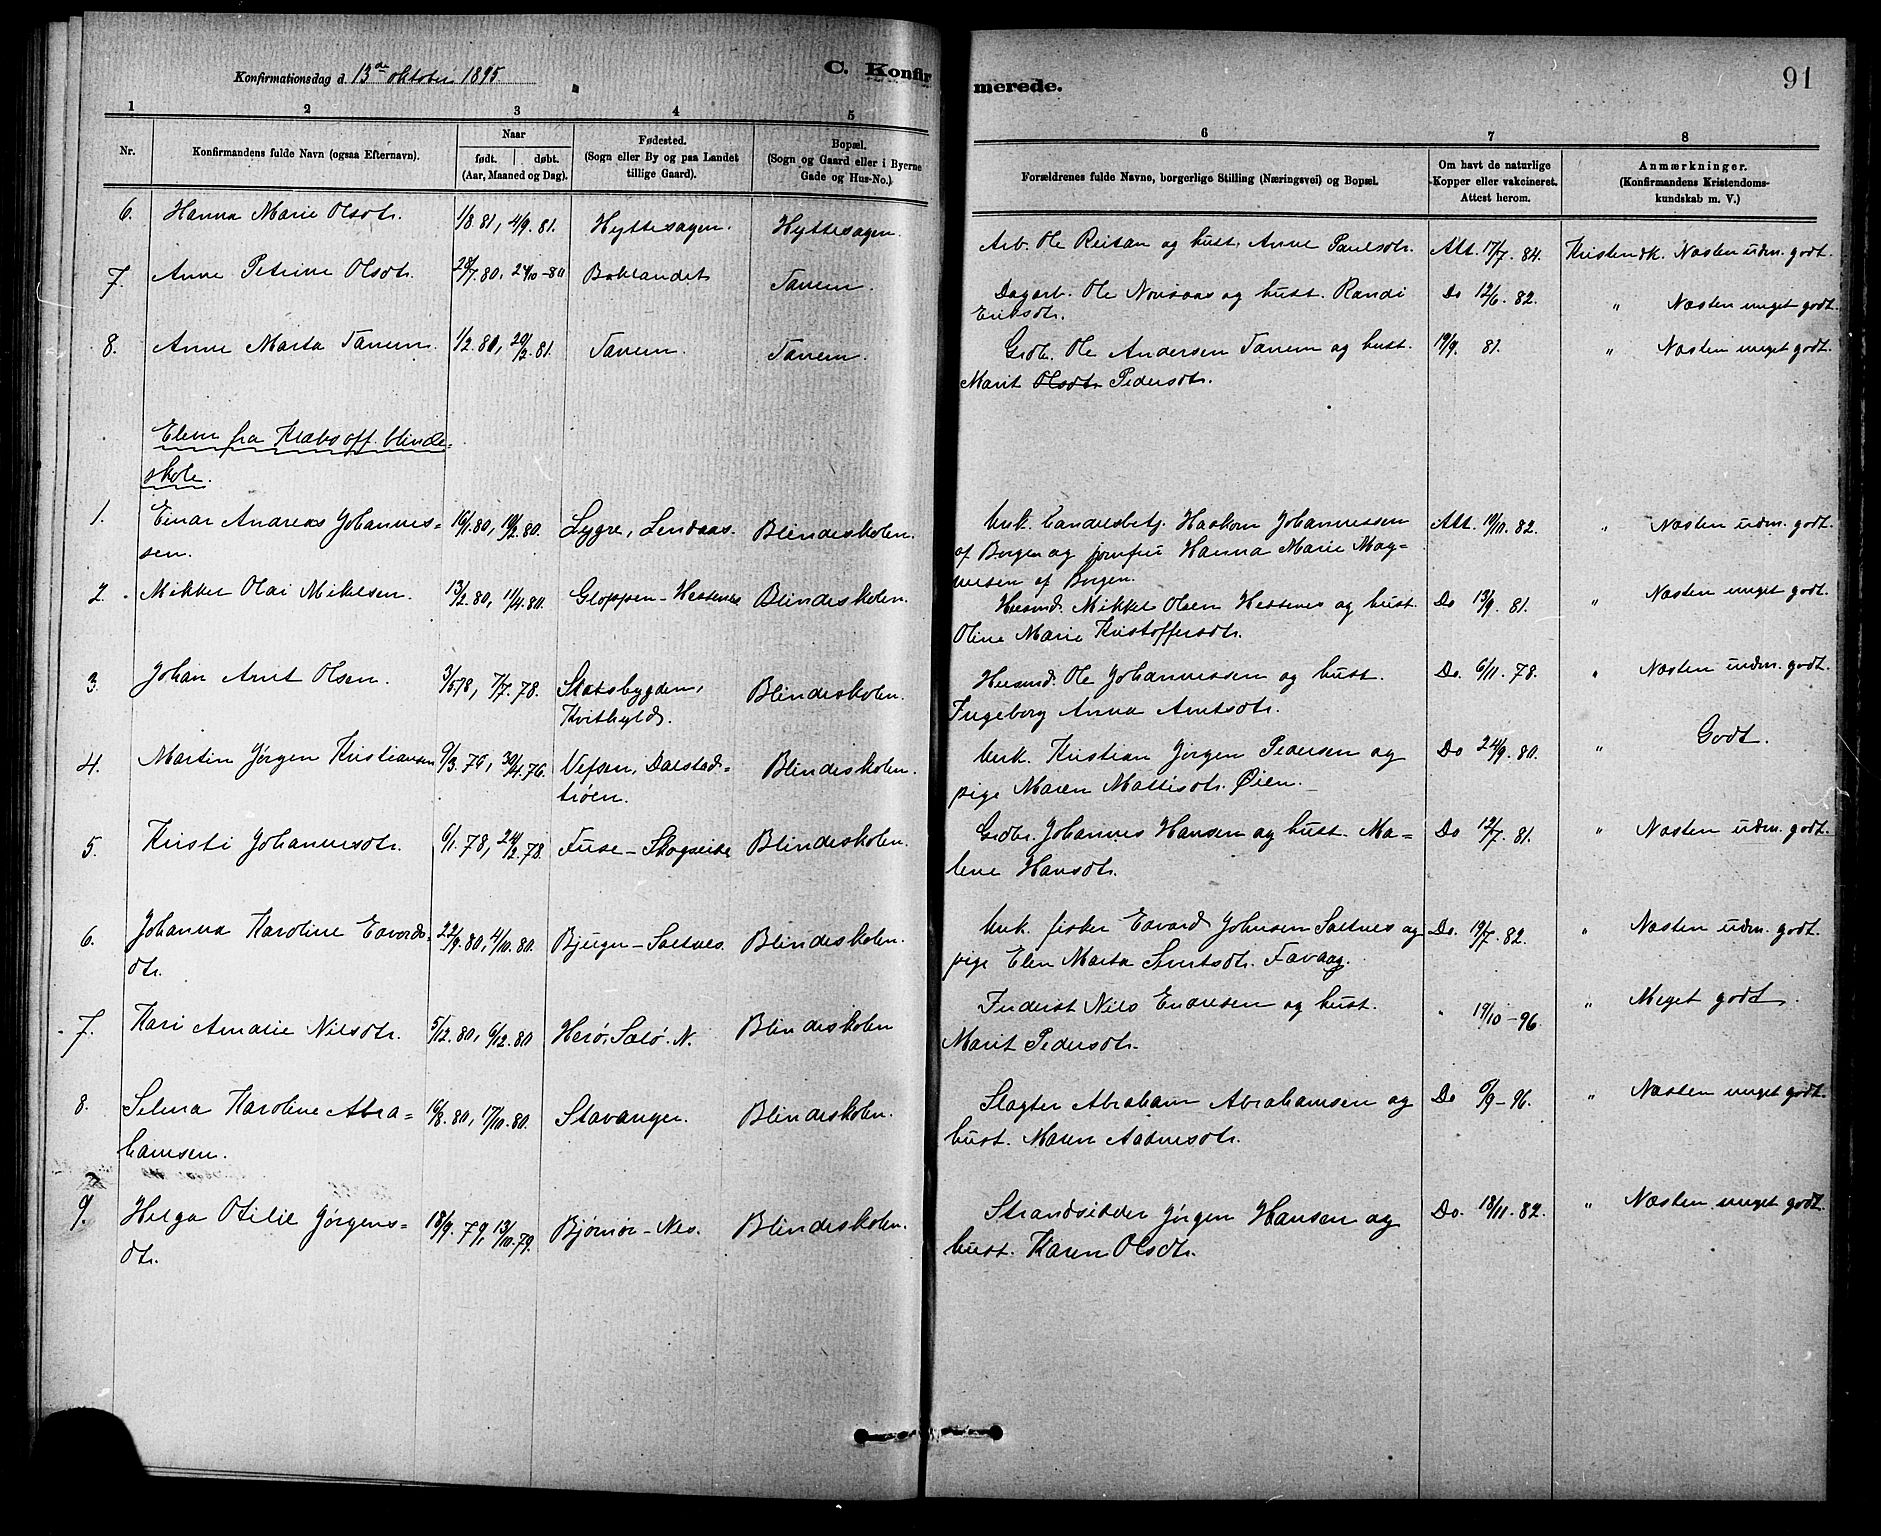 Konfirmationsdag d. 13de oktober 1895.
C. Konfirmerede.
91
1 2 3 4 5 6 7 8
Nr.
Konfirmandens fulde Navn (ogsaa Efternavn).
Naar
født. døbt.
(Aar, Maaned og Dag).
Fødested.
(Sogn eller By og paa Landet
tillige Gaard).
Bopæl.
(Sogn og Gaard eller i Byerne
Gade og Hus-No.)
Forældrenes fulde Navne, borgerlige Stilling (Næringsvei) og Bopæl.
Om havt de naturlige
Kopper eller vakcineret.
Attest herom.
Anmærkninger.
(Konfirmandens Kristendoms-
kundskab m. V.)
6. Hanna Marie Olsdtr. 1/8 81, 4/9. 81. Hyttesagen. Hyttesagen. Arb. Ole Reitan og hust. Anne Paulsdtr. Att. 17/7. 84. Kristendk. Næsten udm. godt.
7. Anne Petrine Olsdtr. 28/7. 80, 24/10-80 Baklandet Tanem. Dagarb. Ole og hust. Randi Do 12/6. 82. " Næsten meget godt.
Eriksdtr.
8. Anne Marta Tanem. 1/2. 81, 20/2. 81. Tanem. Tanem. Grdb. Ole Andersen Tanem og hust. 19/9 81. " Næsten meget godt.
Marit Olsdtr. Pedersdtr.
Elever fra Klæbu off. blinde-
skole.
1. Einar Andreas Johannes- 16/1. 80, 18/2. 80. Lygre, Lindaas. Blindeskolen. Unk. handelsbetj. Haakon Johannessen Att. 19/10. 82. " Næsten udm. godt.
sen. af Bergen og jomfru Hanna Marie Mag-
nusen af Bergen.
2. Mikkel Olai Mikelsen. 13/2. 80, 11/4. 80. Gloppen - Hestenes Blindeskolen. Husmd. Mikkel Olsen Hestenes og hust. Do 13/9. 81. " Næsten meget godt.
Oline Marie Kristoffersdtr.
3. Johan Arnt Olsen. 3/5 78, 7/7. 78. Statsbygden, Blindeskolen. Husmd. Ole Johannessen og hust. Do. 6/11. 78. " Næsten udm. godt.
Kvithyld. Ingeborg Anna Arntsdtr.
4. Martin Jørgen Kristiansen 9/3. 76, 30/4. 76. Vefsen, Dalstad- Blindeskolen. Unk. Kristian Jørgen Pedersen og Do 24/9. 80. " Godt.
trøen. pige Maren Mattisdtr. Øien.
5. Kristi Johannesdtr. 6/1. 78, 24/2. 78. Fuse - Skogseide Blindeskolen. Grdbr. Johannes Hansen og hust. Ma- Do 12/7. 81. " Næsten udm. godt.
lene Hansdtr.
6. Johanna Karoline Edvards- 22/9. 80, 4/10. 80. Bjugn - Saltnes. Blindeskolen. Unk. fisker Edvard Johnsen Saltnes og Do. 19/7. 82. " Næsten udm. godt.
dtr. pige Elen Marta Sivertsdtr. Favaag.
7. Kari Amalie Nilsdtr. 5/12. 80, 6/12. 80 Herø, Salø. N. Blindeskolen Inderst Nils Endresen og hust. " 19/10-96. " Meget godt.
Marit Pedersdtr.
8. Selma Karoline Abra- 16/8. 80, 17/10. 80. Stavanger. Blindeskolen. Slagter Abraham Abrahamsen og Do 6/9-96. " Næsten meget godt.
hamsen. hust. Maren Aadnesdtr.
9. Helga Otilie Jørgens- 18/9. 79, 13/10. 79. Bjørnør - Nes. Blindeskolen. Strandsidder Jørgen Hansen og Do. 18/11. 82. " Næsten meget godt.
dtr. hust. Karen Olsdtr.